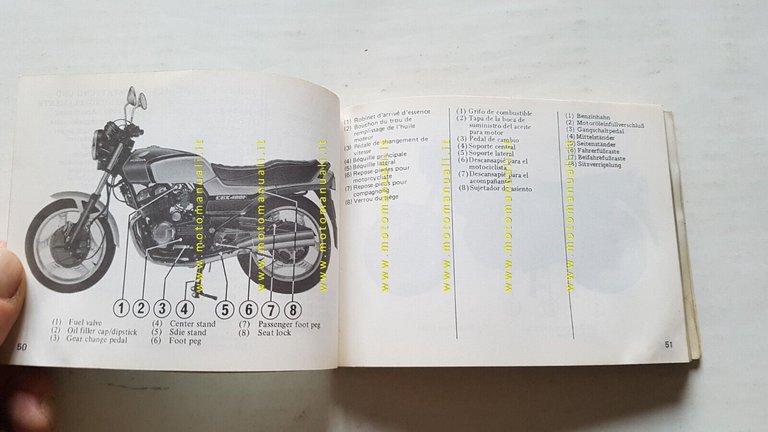 CBX 400F
1 2 3 4 5 6 7 8
(1) Fuel valve
(2) Oil filler cap/dipstick
(3) Gear change pedal
(4) Center stand
(5) Sdie stand
(6) Foot peg
(7) Passenger foot peg
(8) Seat lock
50
(1) Robinet d'arrivé d'essence
(2) Bouchon du trou de
remplissage de l'huile
moteur
(3) Pédale de changement de
vitesse
(4) Béquille principale
(5) Béquille latérale
(6) Repose-pieds pour
motorcycliste
(7) Repose-pieds pour
compagnon
(8) Verrou du siège
(1) Grifo de combustible
(2) Tapa de la boca de
suministro del aceite
para motor
(3) Pedal de cambio
(4) Soporte central
(5) Soporte lateral
(6) Descansapie para el
motociclista
(7) Descansapié para el
acompañante
(8) Sujetador de asiento
(1) Benzinhahn
(2) Motoröleinfüllverschluß
(3) Gangschaltpedal
(4) Mittelständer
(5) Seitenständer
(6) Fahrerfußraste
(7) Beifahrefußraste
(8) Sitzverrigelung
51
www.motomanuali.it
www.motomanuali.it
www.motomanuali.it
www.motomanuali.it
www.motomanuali.it
www.motomanuali.it